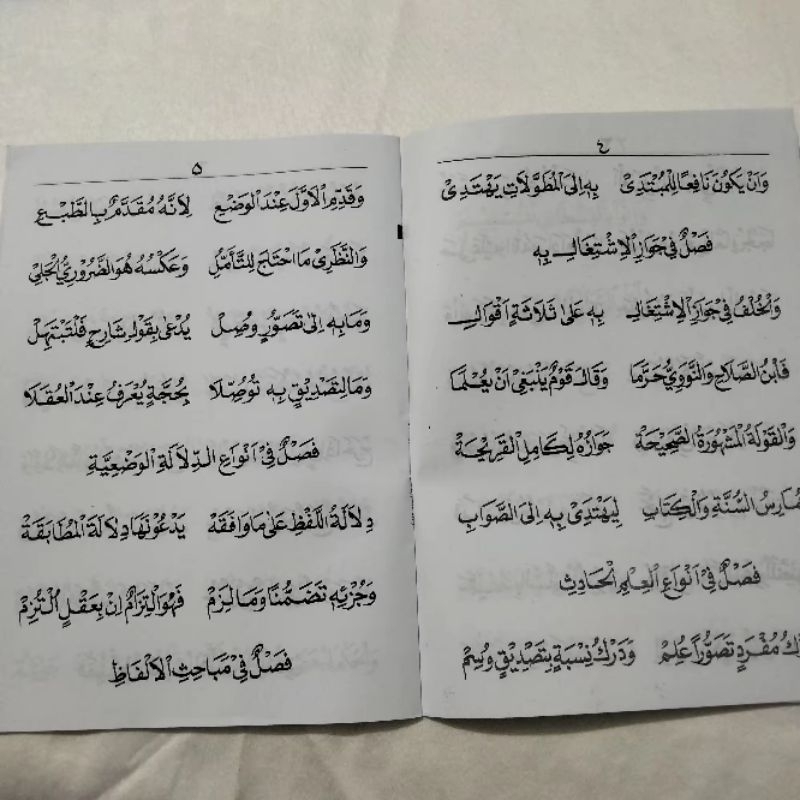 ٤
وَانْ يَكُونَ نَافِعًا لِلْمُبْتَدِىْ بِهِ اِلَى الْمُطَوَّلَاتِ يَهْتَدِىْ
فَصْلٌ فِيْ جَوَازِ الْاِشْتِغَالِ بِهِ
وَالْخُلْفُ فِيْ جَوَازِ الْاِشْتِغَالِ بِهِ عَلَى ثَلَاثَةٍ اَقْوَالِ
فَابْنُ الصَّلَاحِ وَالنَّوَوِيُّ حَرَّمَا وَقَالَ قَوْمٌ يَنْبَغِيْ اَنْ يُعْلَمَا
وَالْقَوْلَةُ الْمَشْهُوْرَةُ الصَّحِيْحَةْ جَوَازُهُ لِكَامِلِ الْقَرِيْحَةْ
مَارِسِ السُّنَّةِ وَالْكِتَابِ لِيَهْتَدِىْ بِهِ اِلَى الصَّوَابِ
فَصْلٌ فِيْ اَنْوَاعِ الْعِلْمِ الْحَادِثِ
رَاكُ مُفْرَدٍ تَصَوُّرًا عُلِمْ وَدَرْكُ نِسْبَةٍ بِتَصْدِيْقٍ وُسِمْ
٥
وَقَدِّمِ الْاَوَّلَ عِنْدَ الْوَضْعِ لِاَنَّهُ مُقَدَّمٌ بِالطَّبْعِ
وَالنَّظَرِىْ مَا احْتَاجَ لِلتَّأَمُّلِ وَعَكْسُهُ هُوَ الضَّرُوْرِيُّ الْجَلِيْ
وَمَا بِهِ اِلَى تَصَوُّرٍ وُصِلْ يُدْعَى بِقَوْلٍ شَارِحٍ فَلْتَبْتَهِلْ
وَمَا لِتَصْدِيْقٍ بِهِ تُوُصِّلَا بِحُجَّةٍ يُعْرَفُ عِنْدَ الْعُقَلَا
فَصْلٌ فِيْ اَنْوَاعِ الدِّلَالَةِ الْوَضْعِيَّةِ
دِلَالَةُ اللَّفْظِ عَلَى مَا وَافَقَهْ يَدْعُوْنَهَا دِلَالَةَ الْمُطَابَقَةْ
وَجُزْئِهِ تَضَمُّنًا وَمَا لَزِمْ فَهْوَ الْتِزَامٌ اِنْ بِعَقْلٍ الْتُزِمْ
فَصْلٌ فِيْ مَبَاحِثِ الْاَلْفَاظِ